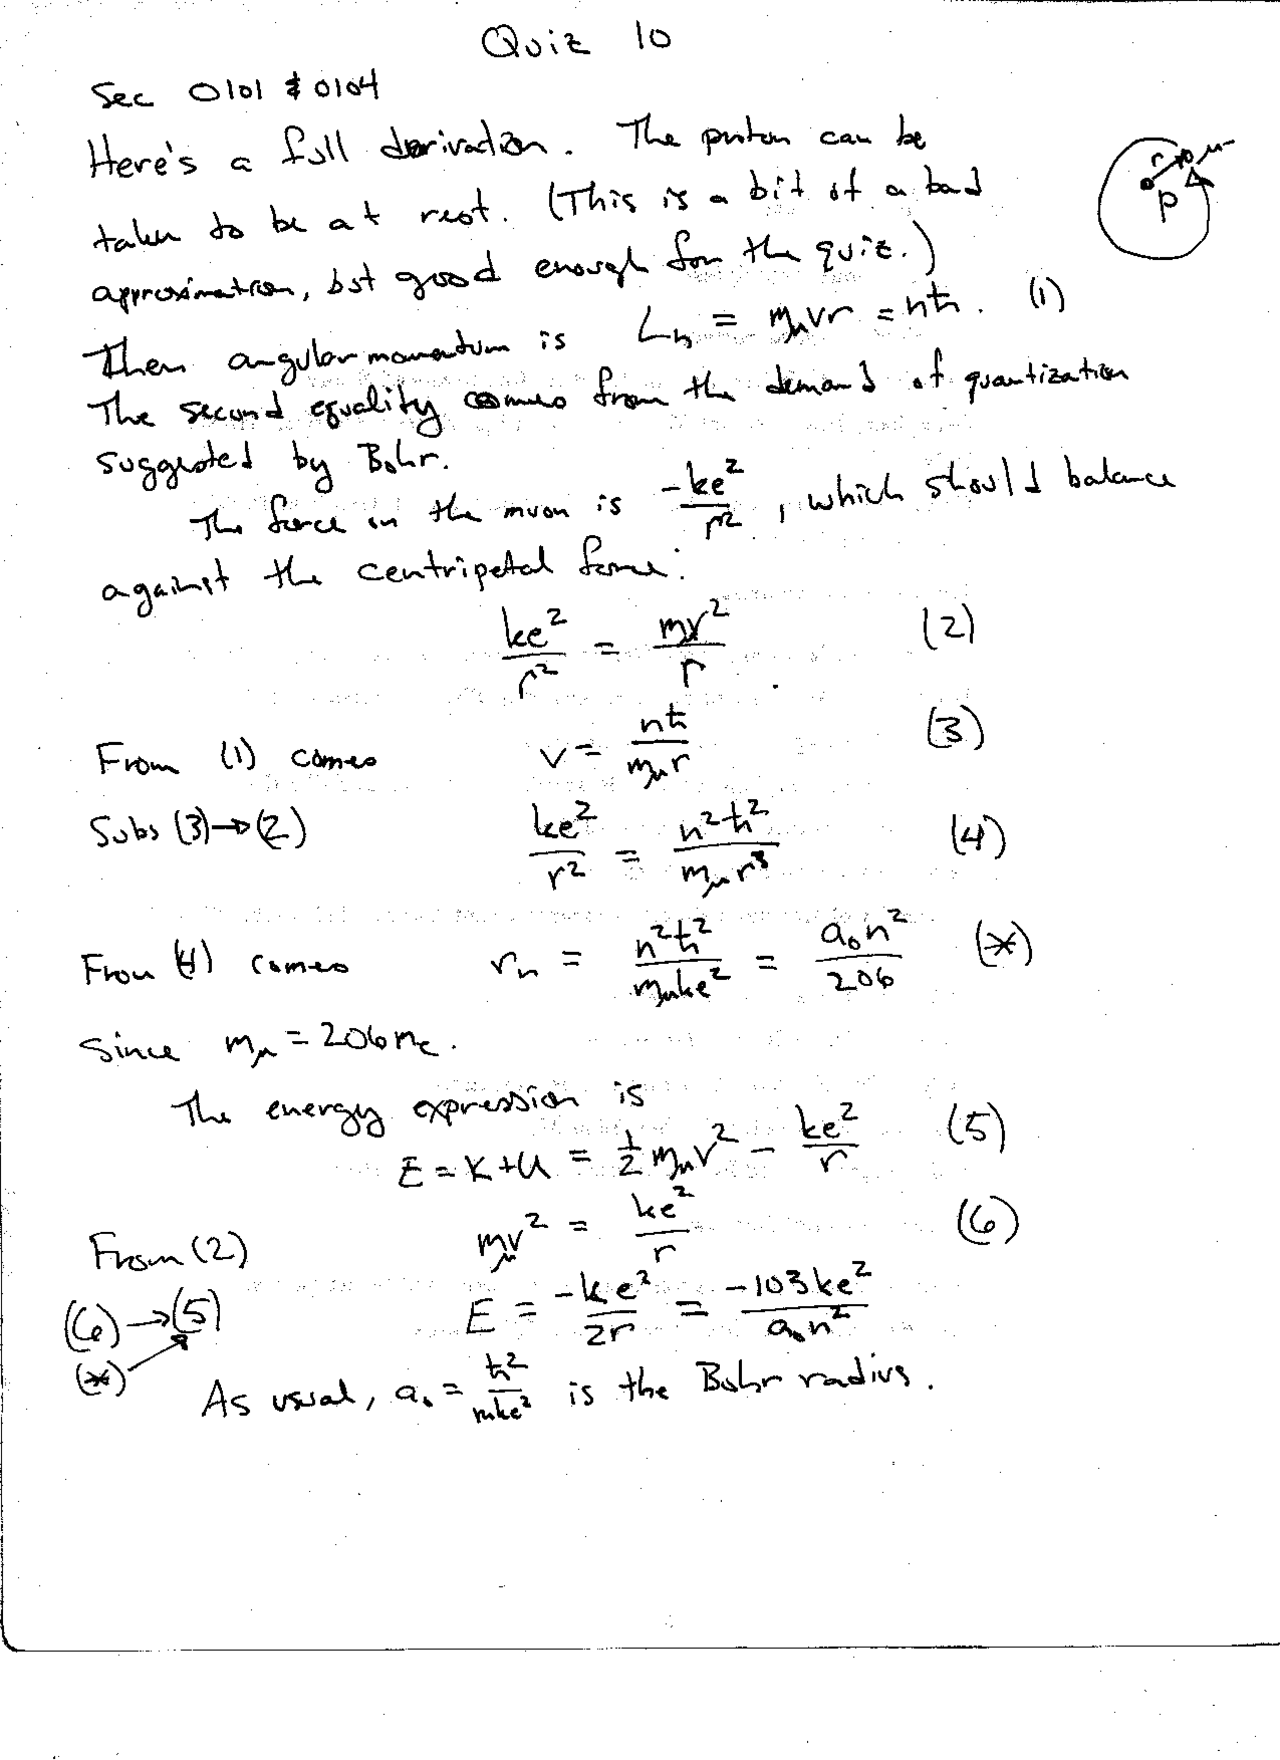 Quiz 10
Sec 0101 & 0104
Here's a full derivation. The proton can be
taken to be at rest. (This is a bit of a bad
approximation, but good enough for the quiz.)
r μ⁻
p
Then angular momentum is Lₙ = m_μvr = nħ. (1)
The second equality comes from the demand of quantization
suggested by Bohr.
The force on the muon is -ke²/r², which should balance
against the centripetal force:
ke²/r² = mv²/r (2)
From (1) comes v = nħ/m_μr (3)
Subs (3)→(2) ke²/r² = n²ħ²/m_μr³ (4)
From (4) comes rₙ = n²ħ²/m_μke² = a₀n²/206 (*)
since m_μ = 206mₑ.
The energy expression is
E = K+U = ½m_μv² - ke²/r (5)
From (2) m_μv² = ke²/r (6)
(6)→(5) E = -ke²/2r = -103ke²/a₀n²
(*)
As usual, a₀ = ħ²/mke² is the Bohr radius.